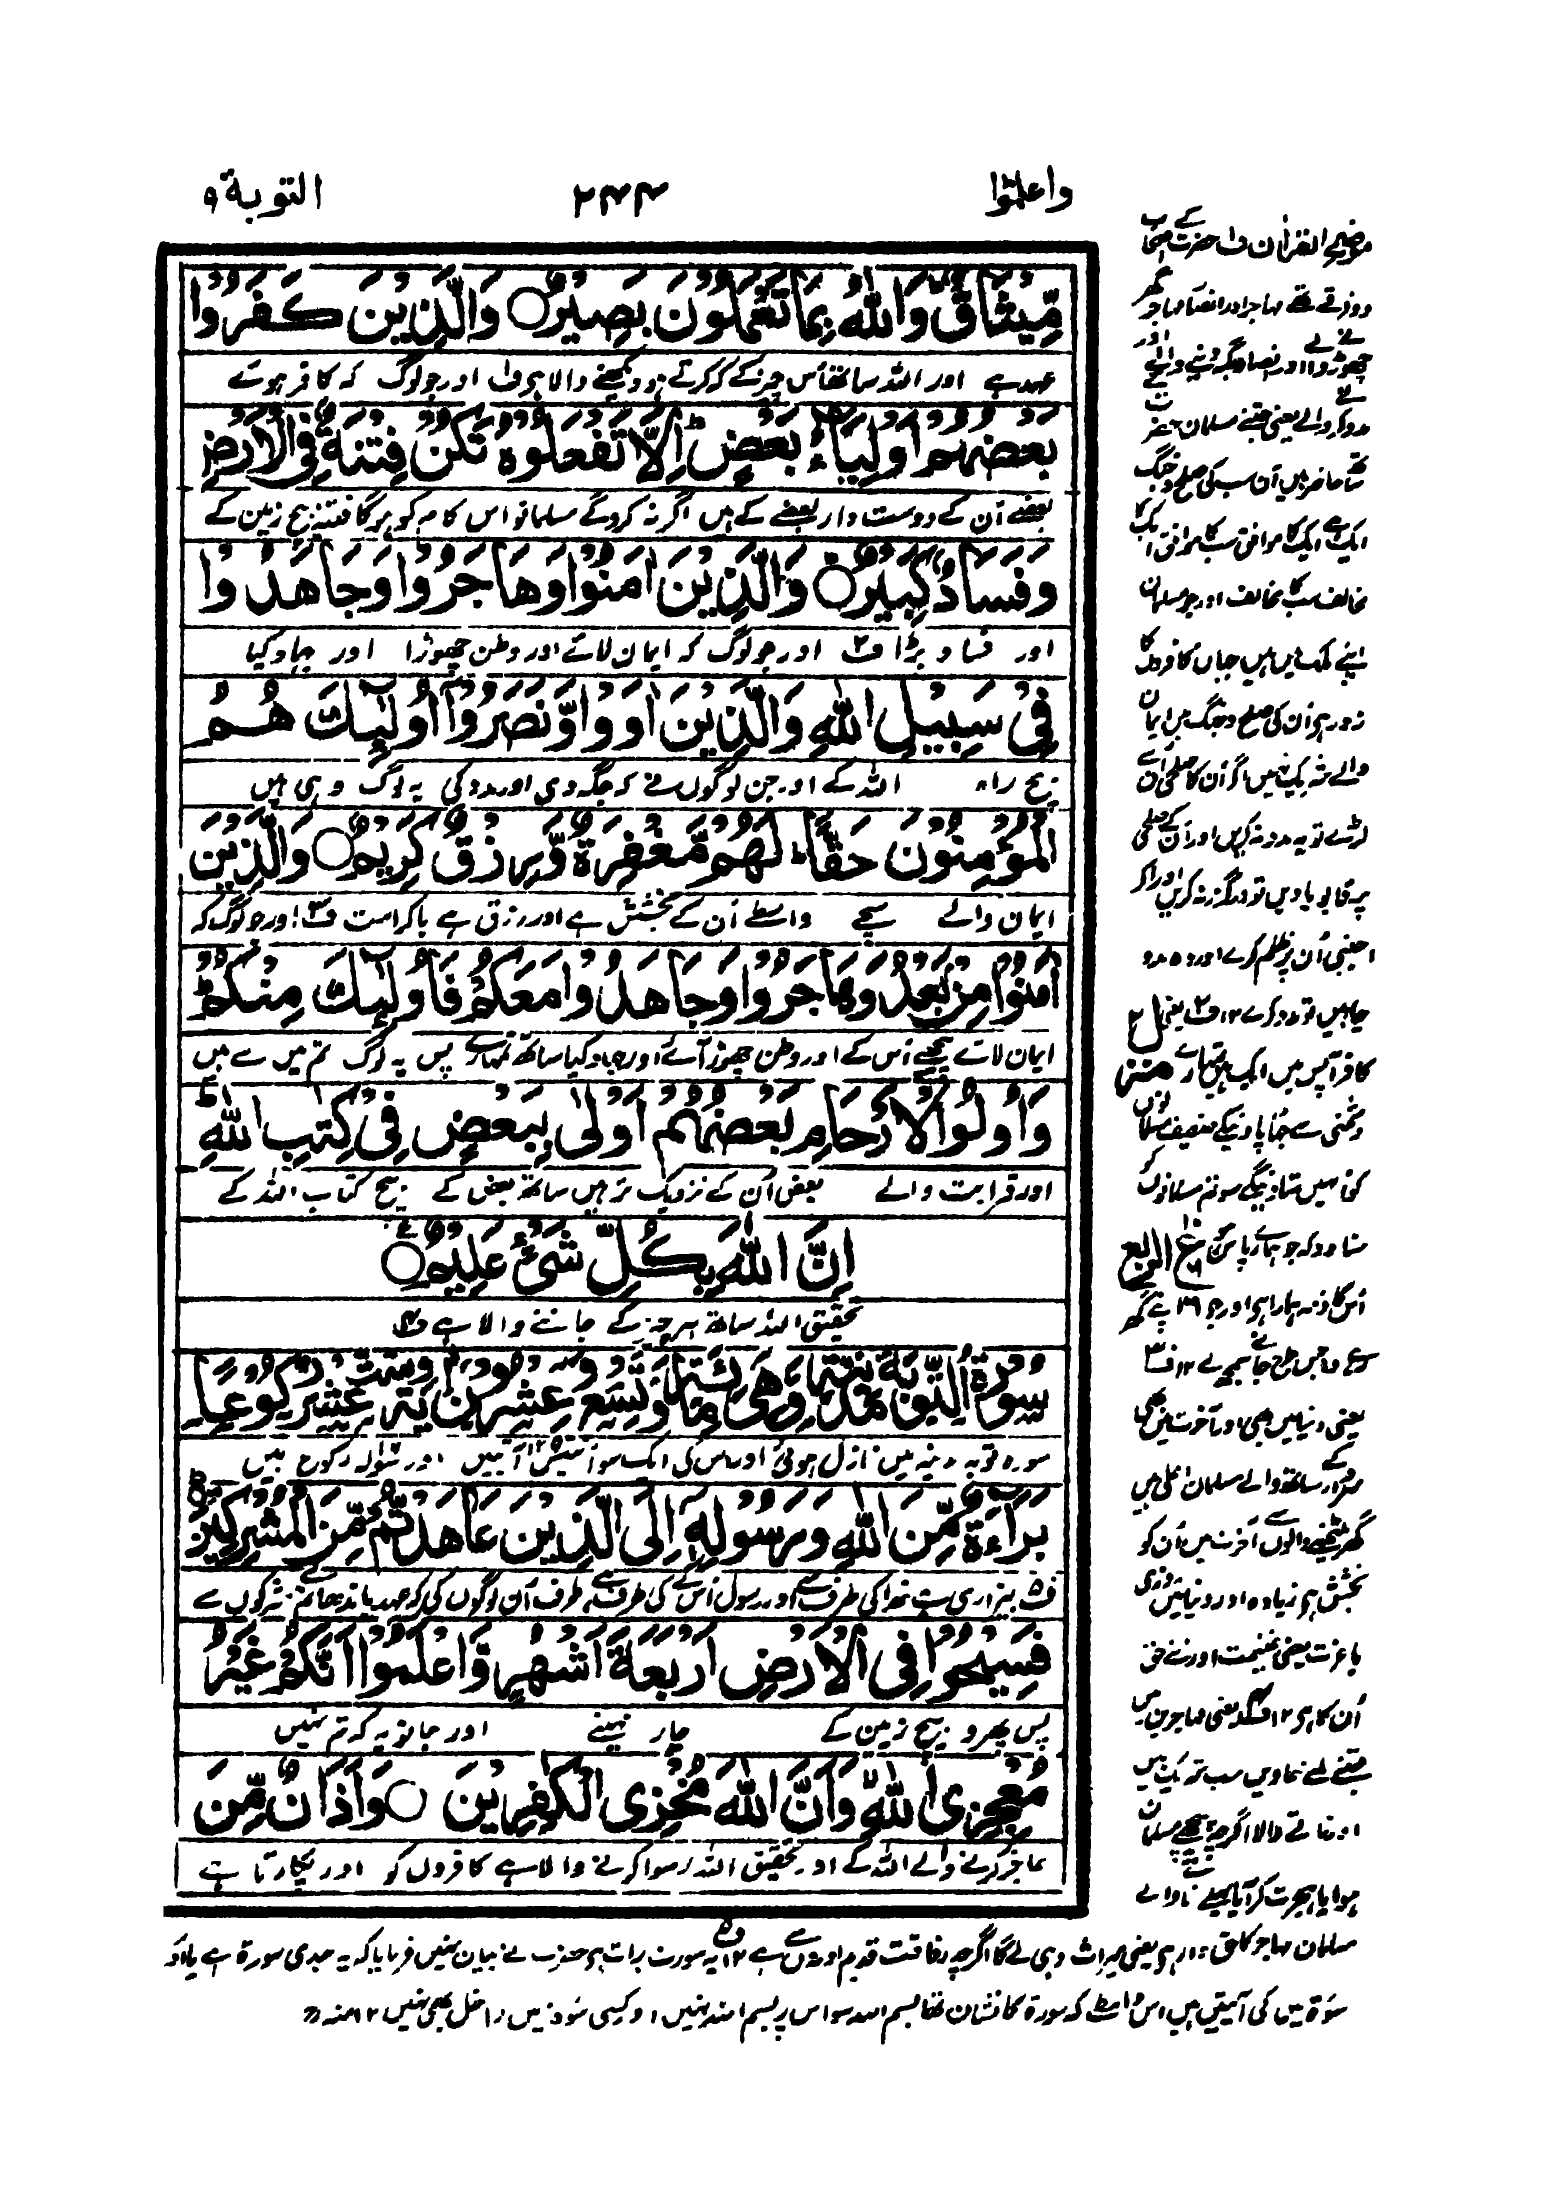 واعلموا ۲۴۴ التوبة ۹
مِّيثَاقٌ وَاللّٰهُ بِمَا تَعْمَلُوْنَ بَصِيْرٌ ○ وَالَّذِيْنَ كَفَرُوْا
عہد ہے اور اللہ ساتھ اُس چیز کے کہ کرتے ہو دیکھنے والا ہی ف۱ اور جو لوگ کہ کافر ہوئے
بَعْضُهُمْ اَوْلِيَآءُ بَعْضٍ ؕ اِلَّا تَفْعَلُوْهُ تَكُنْ فِتْنَةٌ فِى الْاَرْضِ
بعضے اُن کے دوست دار بعضے کے ہیں اگر نہ کروگے مسلمانو اس کام کو ہوگا فتنہ بیچ زمین کے
وَفَسَادٌ كَبِيْرٌ ○ وَالَّذِيْنَ اٰمَنُوْا وَهَاجَرُوْا وَجَاهَدُوْا
اور فساد بڑا ف۲ اور جو لوگ کہ ایمان لائے اور وطن چھوڑا اور جہاد کیا
فِىْ سَبِيْلِ اللّٰهِ وَالَّذِيْنَ اٰوَوْا وَّنَصَرُوْٓا اُولٰٓئِكَ هُمُ
بیچ راہ اللہ کے اور جن لوگوں نے کہ جگہ دی اور مدد کی یہ لوگ وہی ہیں
الْمُؤْمِنُوْنَ حَقًّا ؕ لَهُمْ مَّغْفِرَةٌ وَّرِزْقٌ كَرِيْمٌ ○ وَالَّذِيْنَ
ایمان والے سچے واسطے اُن کے بخشش ہے اور رزق ہے باکرامت ف۳ اور جو لوگ کہ
اٰمَنُوْا مِنْۢ بَعْدُ وَهَاجَرُوْا وَجَاهَدُوْا مَعَكُمْ فَاُولٰٓئِكَ مِنْكُمْ ؕ
ایمان لائے پیچھے اُس کے اور وطن چھوڑ آئے اور جہاد کیا ساتھ تمہارے پس یہ لوگ تم میں سے ہیں
وَاُولُوا الْاَرْحَامِ بَعْضُهُمْ اَوْلٰى بِبَعْضٍ فِىْ كِتٰبِ اللّٰهِ ؕ
اور قرابت والے بعض اُن کے نزدیک تر ہیں ساتھ بعض کے بیچ کتاب اللہ کے
اِنَّ اللّٰهَ بِكُلِّ شَىْءٍ عَلِيْمٌ ○
تحقیق اللہ ساتھ ہر چیز کے جاننے والا ہے ف۴
سورہ توبہ مدینہ میں نازل ہوئی اور اس کی ایک سو انتیس ۱۲۹ آیتیں اور سولہ رکوع ہیں
بَرَآءَةٌ مِّنَ اللّٰهِ وَرَسُوْلِهٖٓ اِلَى الَّذِيْنَ عَاهَدْتُّمْ مِّنَ الْمُشْرِكِيْنَ
ف۵ بیزاری ہے خدا کی طرف سے اور رسول اُس کے کی طرف سے طرف اُن لوگوں کی کہ عہد باندھا تم نے مشرکوں سے
فَسِيْحُوْا فِى الْاَرْضِ اَرْبَعَةَ اَشْهُرٍ وَّاعْلَمُوْٓا اَنَّكُمْ غَيْرُ
پس پھرو بیچ زمین کے چار مہینے اور جانو یہ کہ تم نہیں
مُعْجِزِى اللّٰهِ وَاَنَّ اللّٰهَ مُخْزِى الْكٰفِرِيْنَ ○ وَاَذَانٌ مِّنَ
عاجز کرنے والے اللہ کے اور تحقیق اللہ رسوا کرنے والا ہے کافروں کو اور پکارنا ہے
موضح القرآن ف۱ حضرت کے اصحاب
دو فرقے تھے مہاجر اور انصار مہاجر گھر
چھوڑنے والے اور انصار جگہ دینے والے اور
مدد کرنے والے یعنی جتنے مسلمان حضرت
کے ساتھ حاضر ہیں اُن سب کی صلح و جنگ
ایک ہے ایک کا موافق سب کا موافق ایک کا
مخالف سب کا مخالف اور جو مسلمان
اپنے ملک میں ہیں جہاں کافروں کا
زور ہی اُن کی صلح و جنگ میں ایمان
والے شریک نہیں اگر اُن کا صلحی اُن سے
لڑے تو یہ مدد نہ کریں اور اُن کے صلحی
پر قابو پاویں تو درگزر نہ کریں اور اگر
اجنبی اُن پر ظلم کرے اور وہ مدد
چاہیں تو مدد کرے ۱۲ ف۲ یعنی
کافر آپس میں ایک ہیں تمہارے
دشمنی سے جہاں پاوینگے ضعیف مسلمانوں
کو انہیں ستاوینگے سو تم مسلمانوں کو
سنا دو کہ جو ہمارے پاس
اُس کا ذمہ ہمارا ہی اور جو اپنے گھر
یعنی دنیا میں بھی اور آخرت میں بھی
سردار کے ساتھ والے مسلمان اعلیٰ ہیں
گھر بیٹھنے والوں سے آخرت میں اُن کو
بخشش ہی زیادہ اور دنیا میں روزی
با عزت یعنی غنیمت اور نے حق
اُن کا ہی ۱۲ ف۴ یعنی مہاجرین میں
جتنے ملتے جاویں سب شریک ہیں
اور ناتے والا اگر چہ پیچھے مسلمان
ہوا یا ہجرت کر آیا پہلے ناتے والے
مسلمان مہاجر کا حق دار ہی یعنی میراث وہی لے گا اگرچہ رفاقت قدیم اوروں سے ہے ۱۲ ف۵ یہ سورت برات ہی حضرت نے بیان نہیں فرمایا کہ یہ جدی سورۃ ہے یا اور
سورۃ میں کی آیتیں ہیں اس واسطے کہ سورۃ کا نشان تھا بسم اللہ سو اس پر بسم اللہ نہیں اور کسی سورۃ میں داخل بھی نہیں ۱۲ منہ